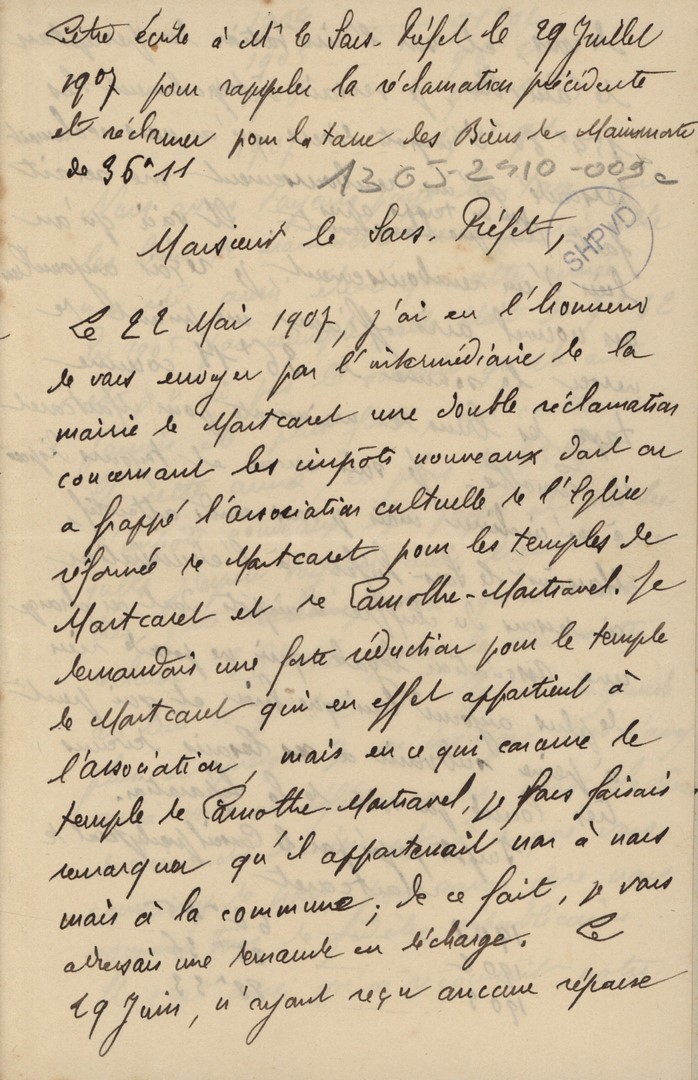 Lettre écrite à Mr le Sous-Préfet le 29 Juillet
1907 pour rappeler la réclamation précédente
et réclamer pour la taxe des Biens de Mainmorte
de 36f 11
13 GJ-2410-009c
SHPVD
Monsieur le Sous-Préfet,
Le 22 Mai 1907, j'ai eu l'honneur
de vous envoyer par l'intermédiaire de la
mairie de Montcaret une double réclamation
concernant les impôts nouveaux dont on
a frappé l'association cultuelle de l'Eglise
réformée de Montcaret pour les temples de
Montcaret et de Lamothe-Montravel. Je
demandais une forte réduction pour le temple
de Montcaret qui en effet appartient à
l'association, mais en ce qui concerne le
temple de Lamothe-Montravel, je faisais
remarquer qu'il appartenait non à nous
mais à la commune; de ce fait, je vous
adressais une demande en décharge. Le
29 Juin, n'ayant reçu aucune réponse